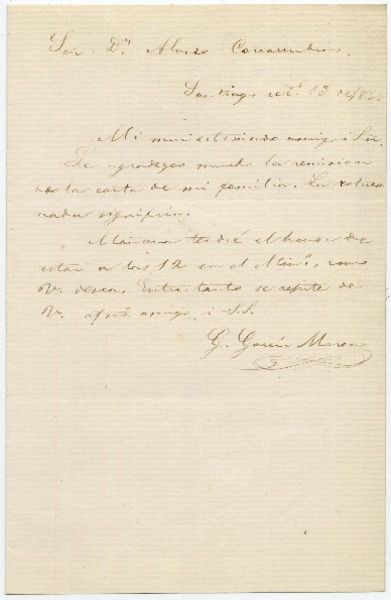 Señor Dn. Alvaro Covarrubias.
Santiago set. 23 de/86
Mi mui estimado amigo i Señor.
Le agradezco mucho la remision
de la carta de mi familia. La rotura
nada significa.
Mañana tendré el honor de
estar a las 12 en el Mino., como
V. desea. Entre tanto se repite de
V. afmo. amigo i S.S.
G. García Moreno